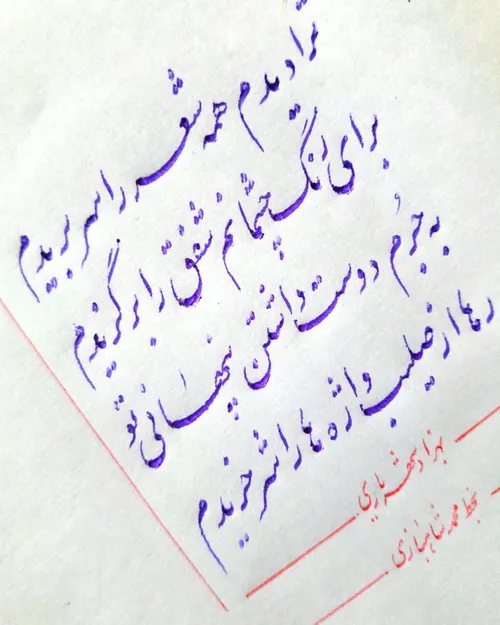 ترا دیدم همه شعر را سر بریدم
برای رنگ چشمانم شفق را برگزیدم
به جُرم دوست داشتن پنهانی تو
رها از صلیب واژه ها را شر خریدم
بهزاد شهریاری
بخط محمد شاهبازی